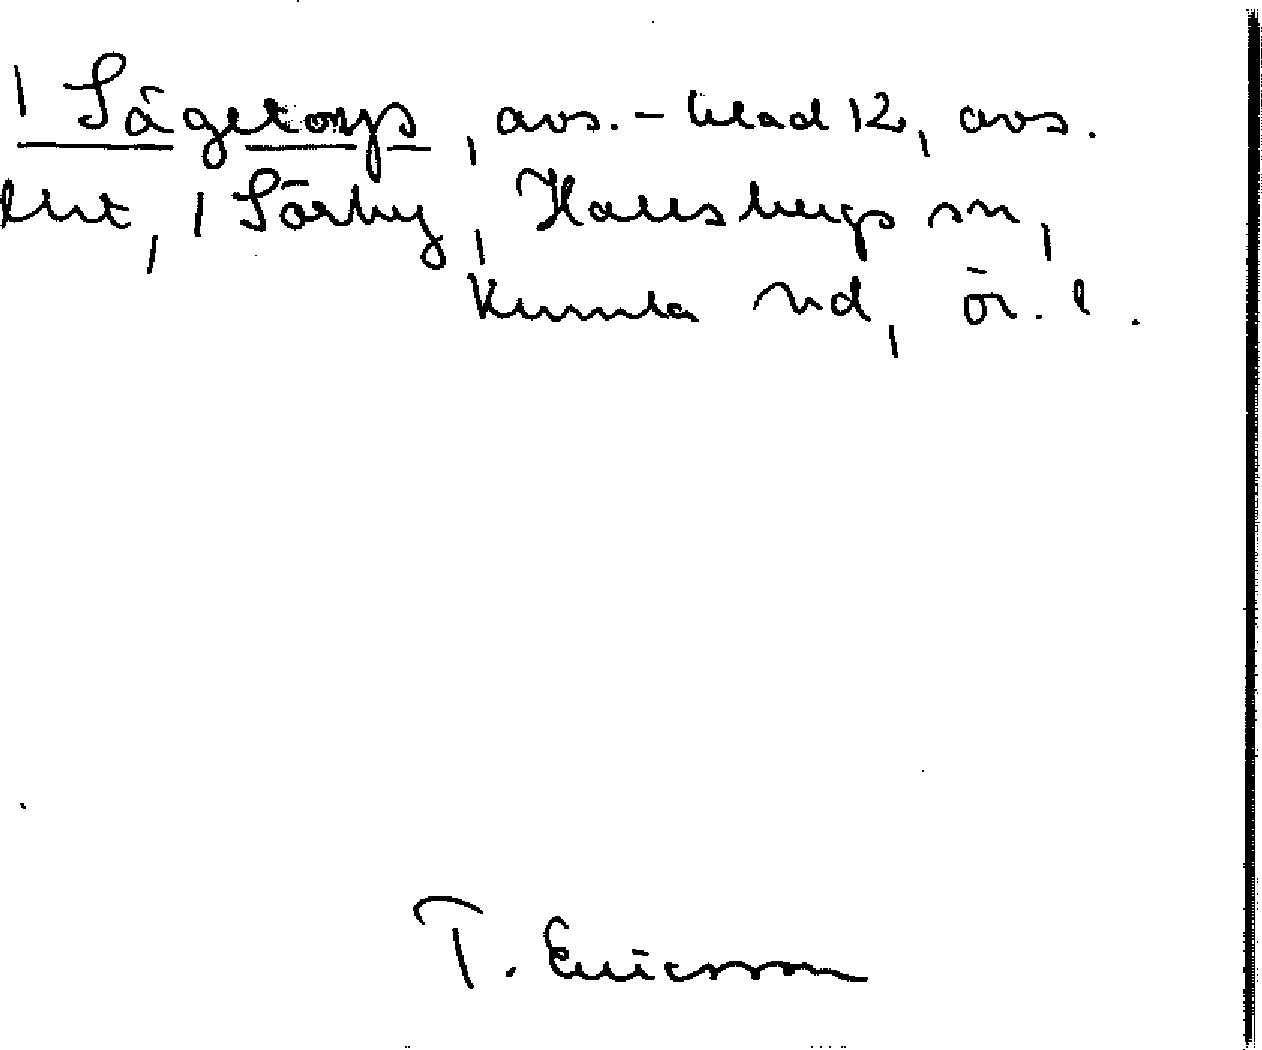 | Sågetorps, avs. - blad 12, avs.
tkt, | Sörby, Hallsbergs sn,
Kumla hd, ör. l.
T. Ericsson